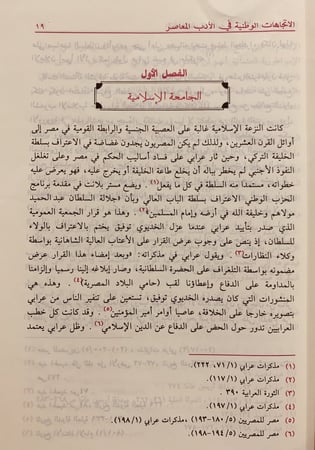 الاتجاهات الوطنية في الأدب المعاصر
١٩
الفصل الأول
الجامعة الإسلامية
كانت النزعة الإسلامية غالبة على العصبية الجنسية والرابطة القومية في مصر إلى
أوائل القرن العشرين، ولذلك لم يكن المصريون يجدون غضاضة في الاعتراف بسلطة
الخليفة التركي، وحين ثار عرابي على فساد أساليب الحكم في مصر وعلى تغلغل
النفوذ الأجنبي لم يخطر بباله أن يخلع طاعة الخليفة أو يخرج عليه، فهو يعرض عليه
خطواته، مستمدا منه السلطة في كل ما يفعل(١). ويضع مستر بلانت في مقدمة برنامج
الحزب الوطني الاعتراف بسلطة الباب العالي وبأن «جلالة السلطان عبد الحميد
مولاهم وخليفة الله في أرضه وإمام المسلمين»(٢). وهذا هو قرار الجمعية العمومية
الذي صدر بتأييد عرابي عندما عزل الخديوي توفيق يختم بالاعتراف بالولاء
للسلطان، إذ ينص على وجوب عرض القرار على الأعتاب العالية الشاهانية بواسطة
وكلاء النظارات(٣). ويقول عرابي في مذكراته: «وبعد إمضاء هذا القرار عرض
مضمونه بواسطة التلغراف على الحضرة السلطانية، وصار إبلاغه إلينا رسميا وإلزامنا
بالمداومة على الدفاع وإعطاؤنا لقب (حامي البلاد المصرية)(٤). وهذه هي
المنشورات التي كان يصدره الخديوي توفيق، تستعين على تنفير الناس من عرابي
بتصويره خارجا على الخلافة، عاصيا أوامر أمير المؤمنين(٥). وقد كانت كل خطب
العرابيين تدور حول الحض على الدفاع عن الدين الإسلامي(٦). وظل عرابي يعتمد
(١) مذكرات عرابي (٧١/١، ٢٢٢).
(٢) مذكرات عرابي (١١٧/١).
(٣) الثورة العرابية ٣٩٠.
(٤) مذكرات عرابي (١٩٧/١).
(٥) مصر للمصريين (١٨٠/٥-١٩٣) ،مذكرات عرابي (١٩٨/١).
(٦) مصر للمصريين (١٩٤/٥-١٩٨).